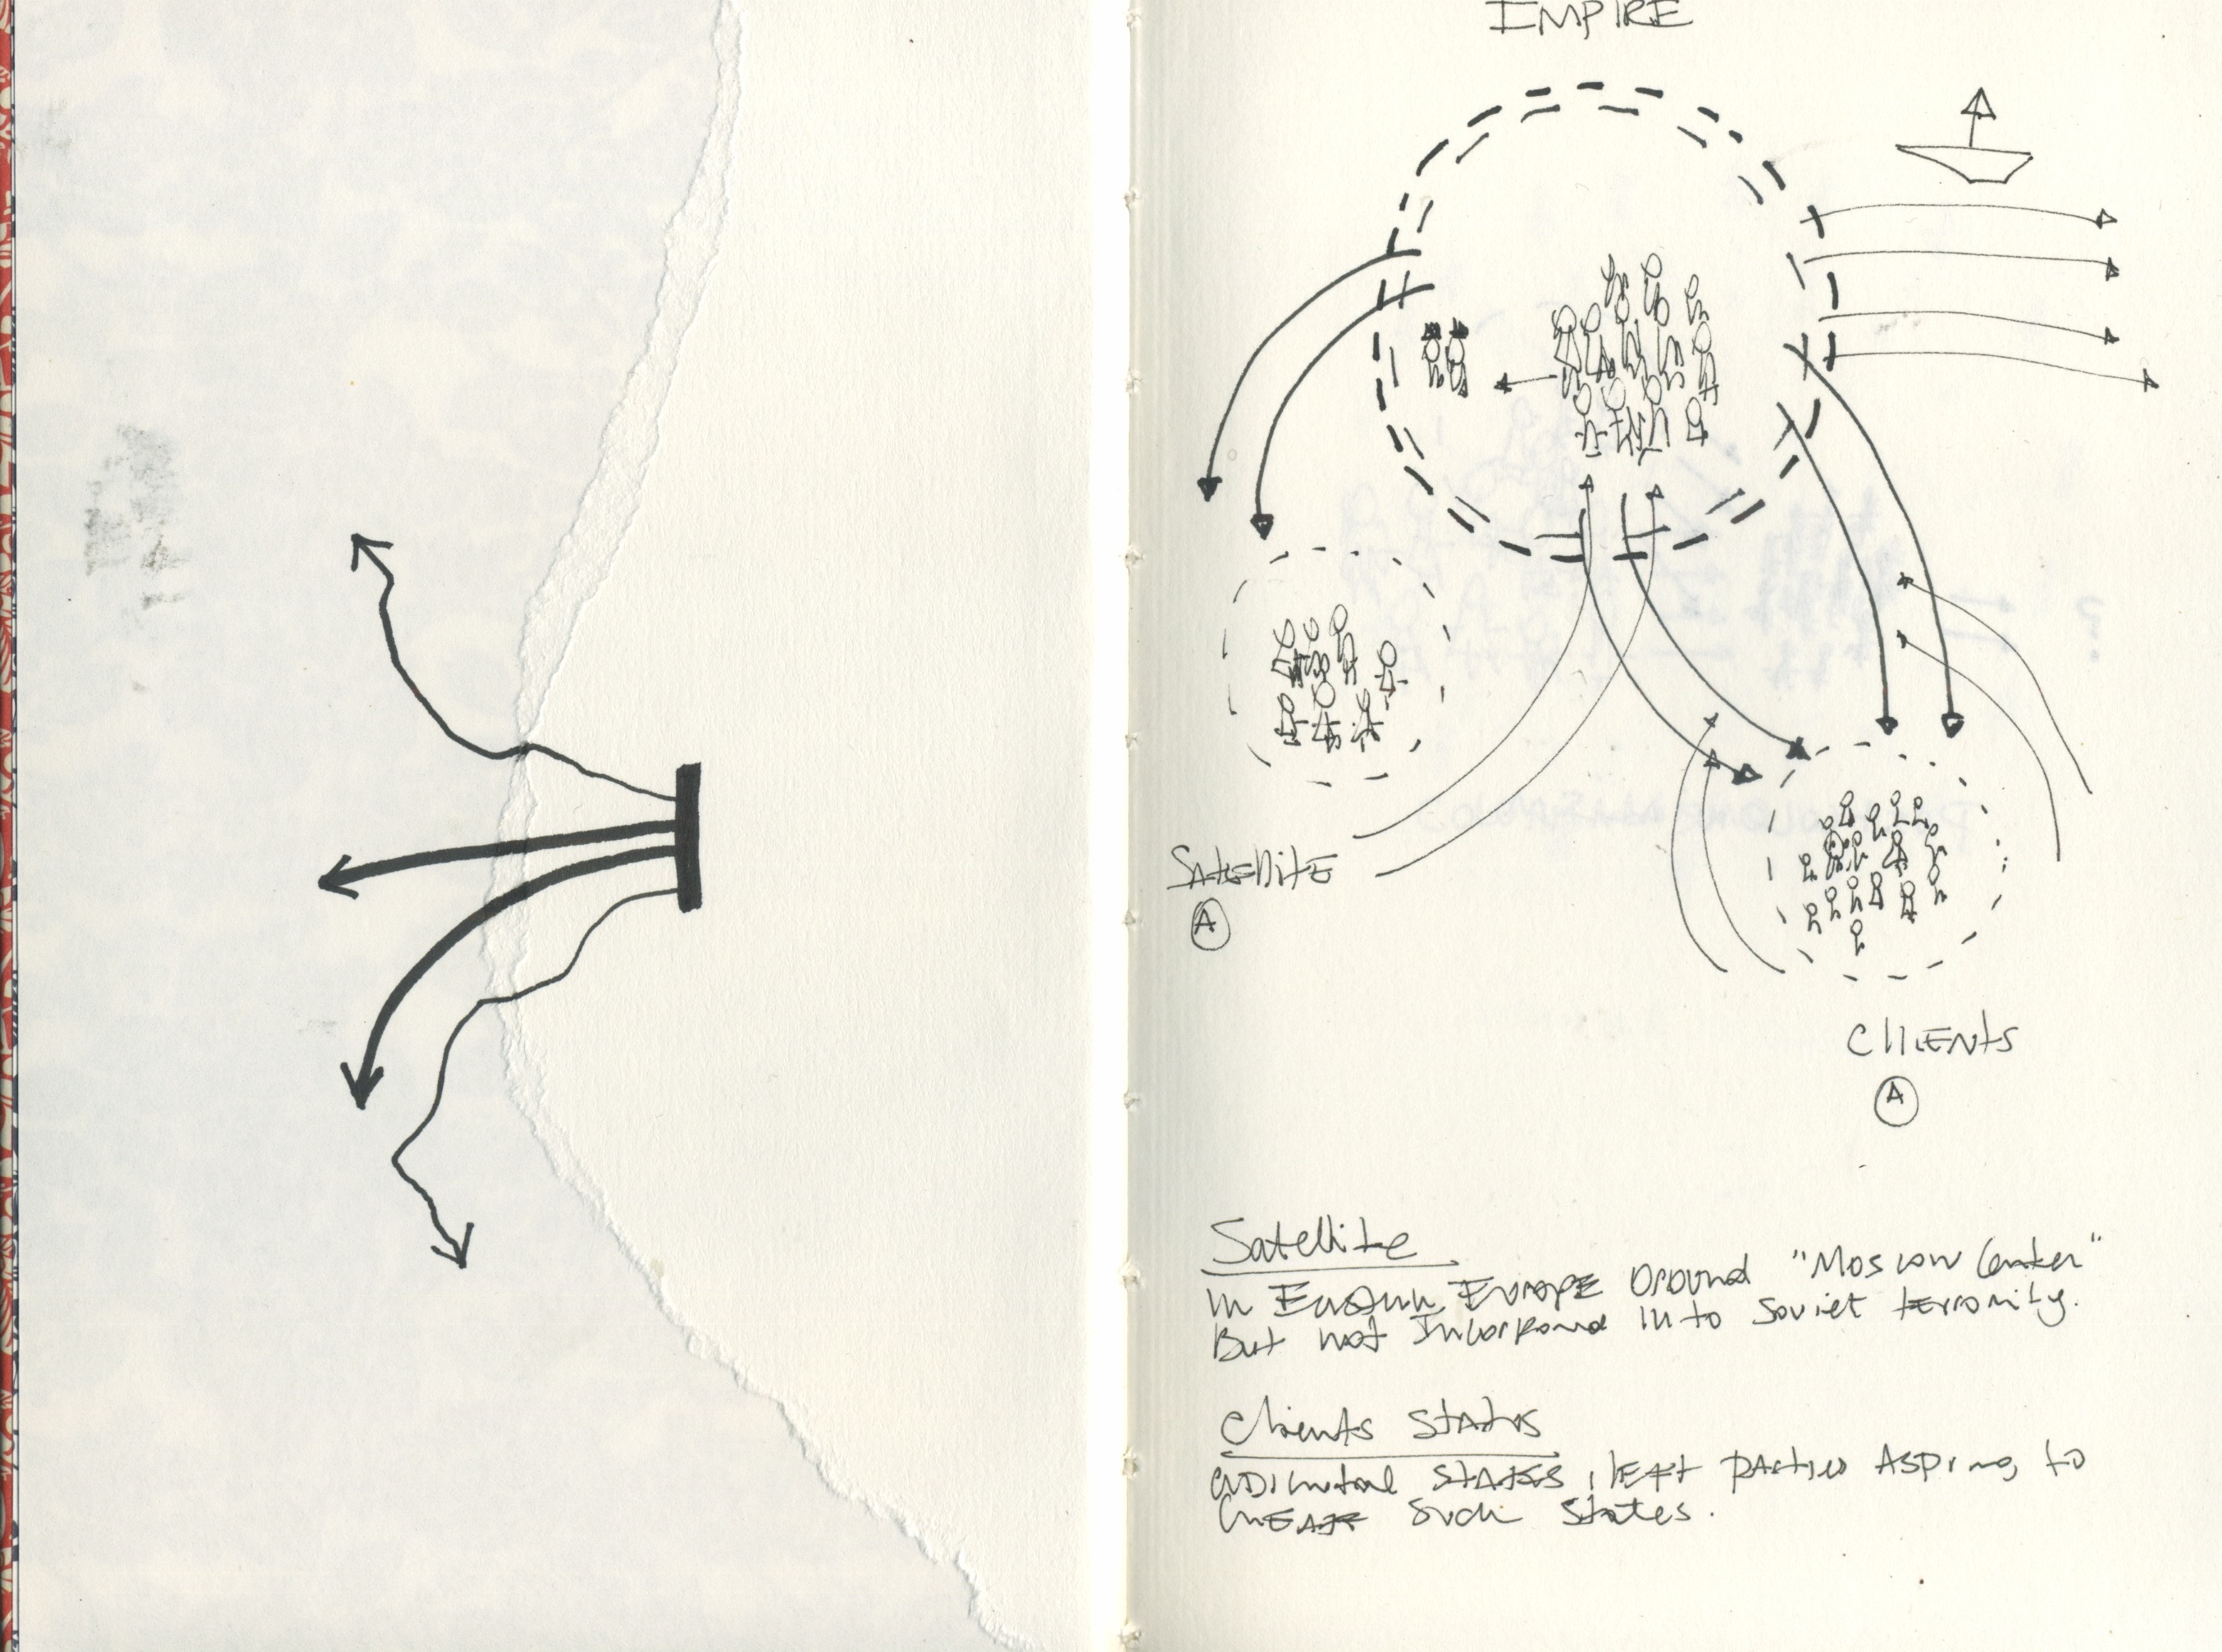 IMPIRE
Satellite
A
Clients
A
Satellite
in Eastern Europe around "Moscow Center"
But not Incorporad into Soviet terrority.
Clients States
additional states, left parties Aspiring to
Create such states.